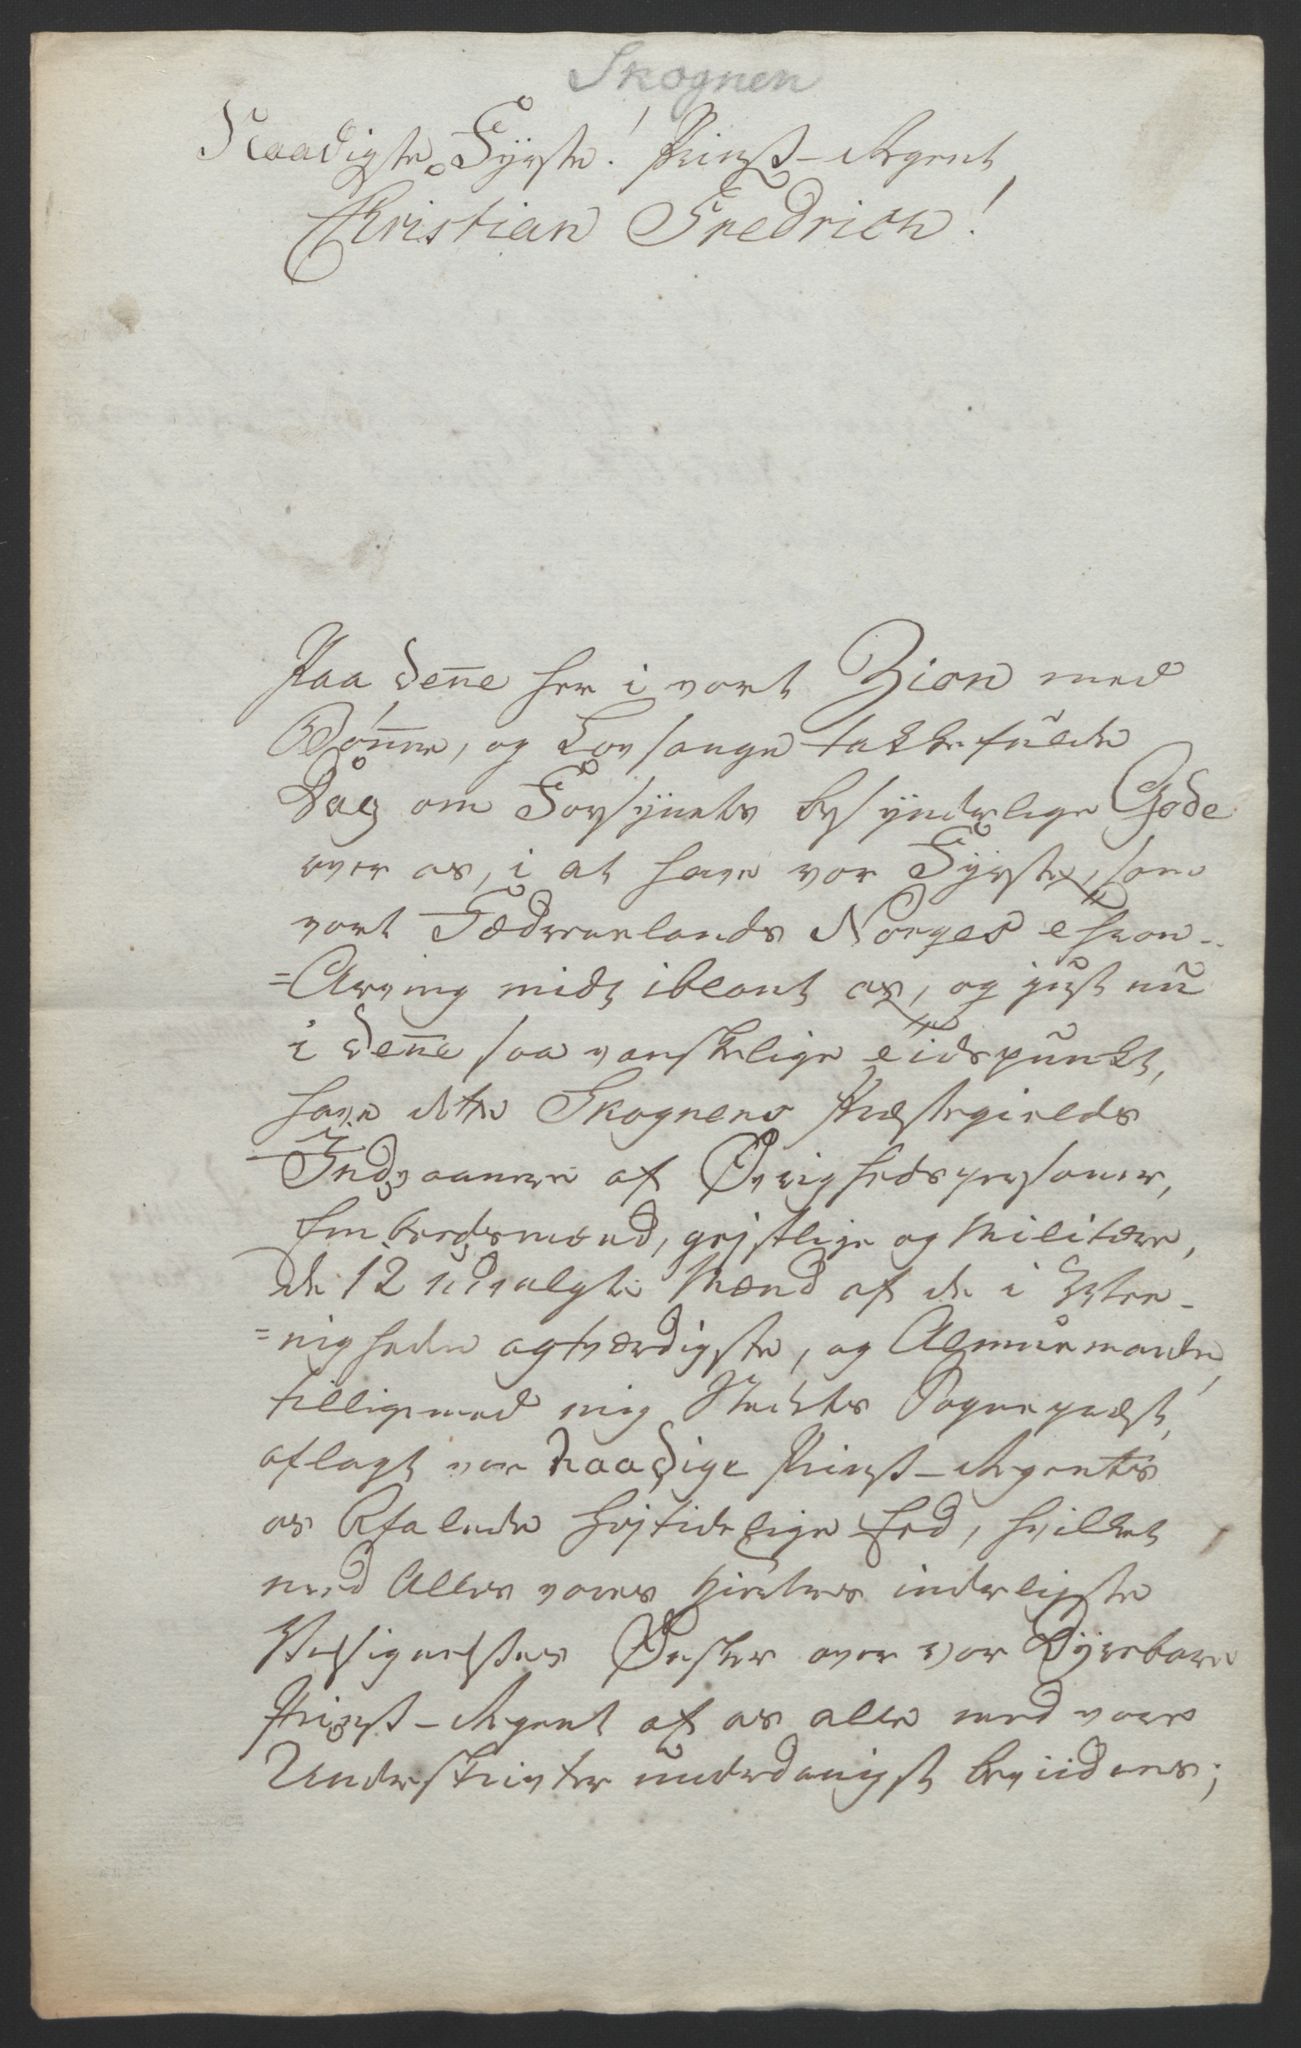 Skognen
Naadigste Fyrste! Prinss-Regent
Christian Fredrich!
Paa deñe her i vort Zion med
Bøñer, og Lovsange takkefulde
Dag om Forsynets besynderlige Gode
over os, i at have vor Fyrste, som
vort Fædrenelands Norges Thron-
=Arving midt iblant os, og just nu
i deñe saa vanskelige Tidspunkt,
have dette Skognens Præstegields
Indvaanere af Øvrighedspersoner,
Embedsmænd, gejstlige og Militære,
de 12 udvalgte Mænd af de i Mee-
=nigheden agtværdigste, og Almuemænd
tilligemed mig Stedets Sognepræst,
aflagt vor Naadige Prinss-Regents
os befalede højtidelige Eed, hvilket
med Alles vores Hierters inderligste
Velsignelses Ønsker over vor Dyrebare
Prinss-Regent af os alle med vore
Underskrivter underdanigst bevidnes;